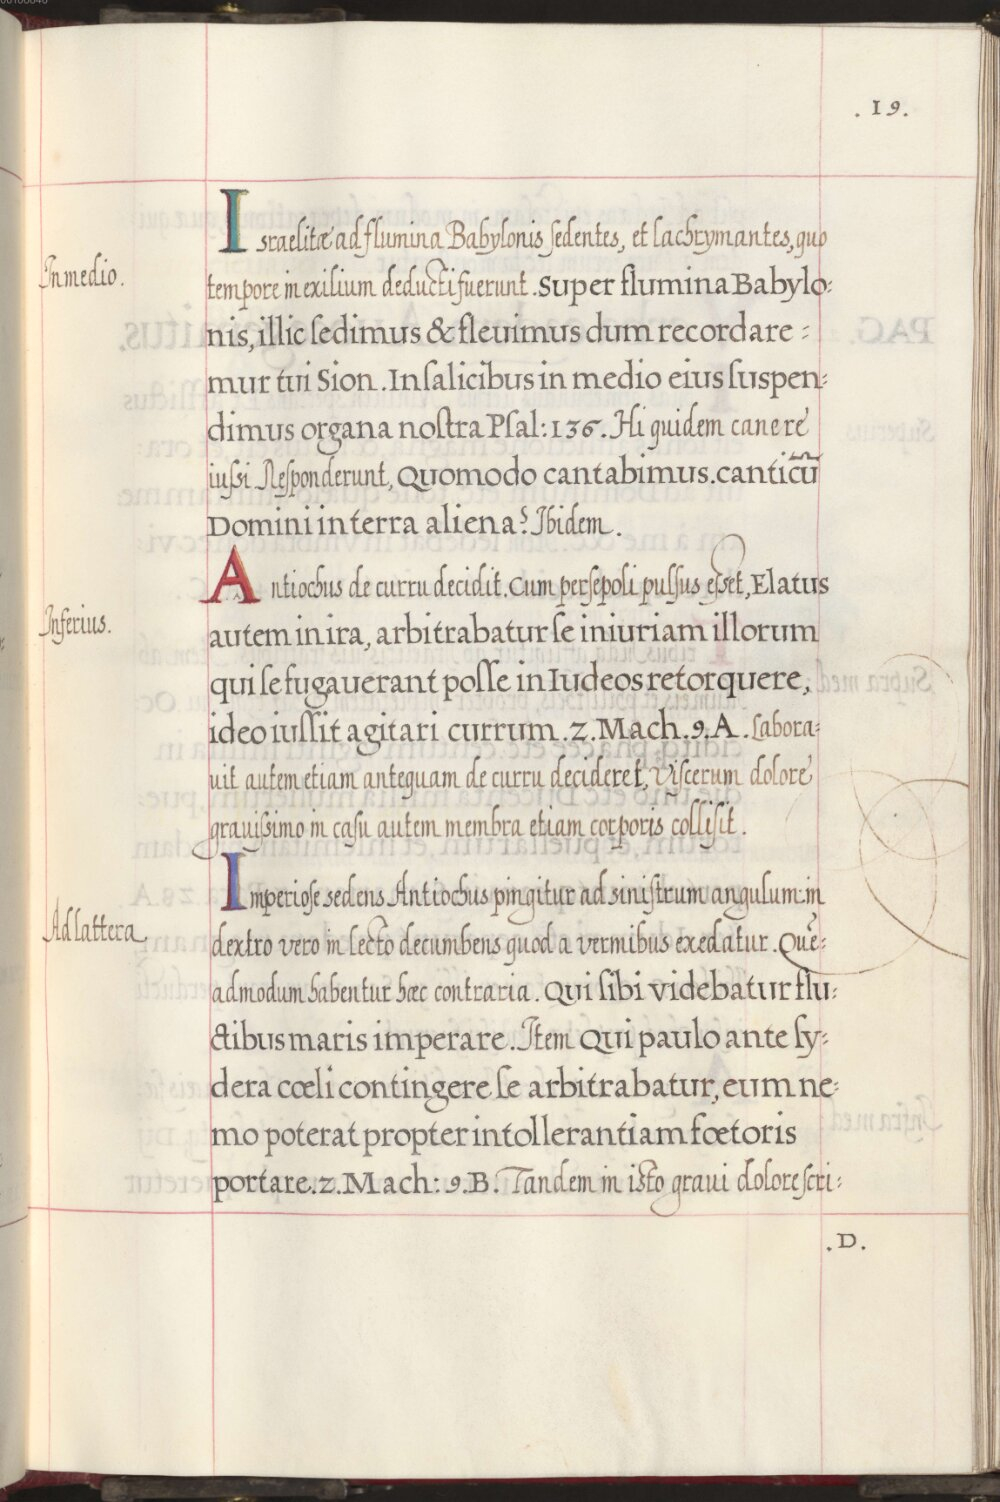 .19.
Israelitæ ad flumina Babylonis sedentes, et lachrymantes, quo
In medio.
tempore in exilium deducti fuerunt. Super flumina Babylo:
nis, illic ſedimus & fleuimus dum recordare:
mur tui Sion. In ſalicibus in medio eius ſuspen:
dimus organa noſtra Pſal: 136. Hi quidem canere
iuſsi Reſponderunt, Quomodo cantabimus. canticū
Domini in terra aliena? Ibidem.
Antiochus de curru decidit. Cum perſepoli pulſus eſset, Elatus
Inferius.
autem in ira, arbitrabatur ſe iniuriam illorum
qui ſe fugauerant poſſe in Iudeos retorquere,
ideo iuſſit agitari currum. 2. Mach. 9. A. Labora:
uit autem etiam antequam de curru decideret, Viſcerum dolore
grauiſsimo in caſu autem membra etiam corporis colliſit.
Imperioſe sedens Antiochus pingitur ad siniſtrum angulum: in
Ad lattera
dextro vero in lecto decumbens quod a vermibus exedatur. Quē:
admodum habentur hæc contraria. Qui ſibi videbatur flu:
ctibus maris imperare. Item Qui paulo ante ſy:
dera cœli contingere ſe arbitrabatur, eum ne:
mo poterat propter intollerantiam fœtoris
portare. 2. Mach: 9. B. Tandem in isto graui dolore ſcri:
.D.